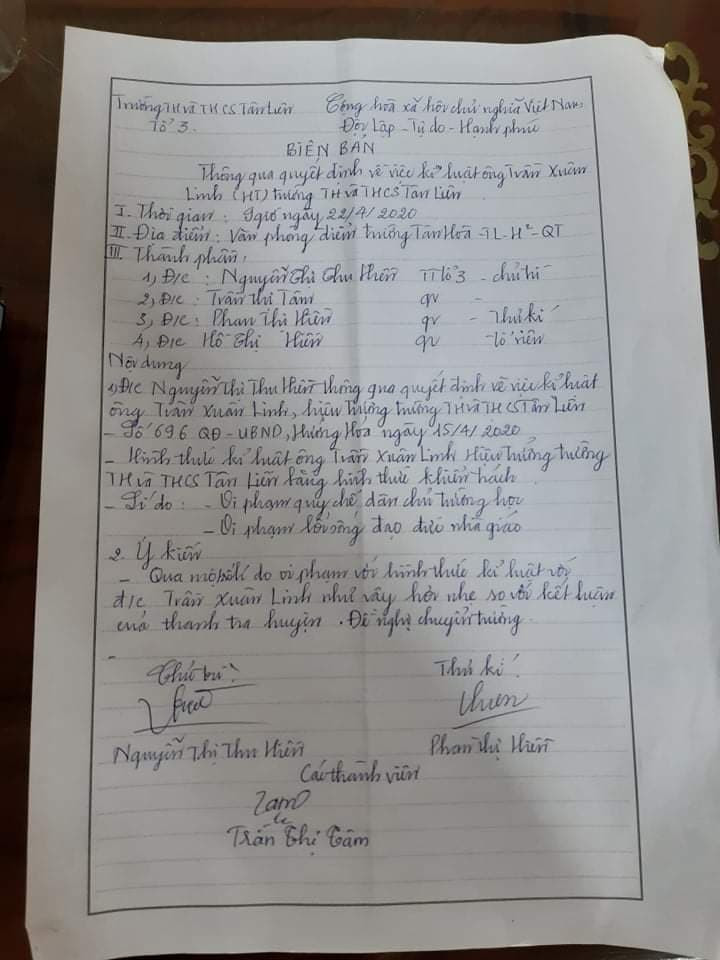 Trường TH và THCS Tân Liên Cộng hoà xã hội chủ nghĩa Việt Nam
Tổ 3. Độc Lập - Tự do - Hạnh phúc
BIÊN BẢN
Thông qua quyết định về việc kỉ luật ông Trần Xuân
Linh (HT) trường TH và THCS Tân Liên
I. Thời gian: 9giờ ngày 22/4/2020
II. Địa điểm: Văn phòng điểm trường Tân Hoà - TL - H² - QT
III. Thành phần:
1, Đ/c: Nguyễn Thị Thu Hiền TTổ 3 - chủ trì
2, Đ/c: Trần Thị Tâm gv -
3, Đ/c: Phan Thị Hiền gv - Thư kí
4, Đ/c Hồ Thị Hiền gv - tổ viên
Nội dung
1, Đ/c Nguyễn Thị Thu Hiền thông qua quyết định về việc kỉ luật
ông Trần Xuân Linh, hiệu trưởng trường TH và THCS Tân Liên
- Số 696 QĐ - UBND, Hướng Hoá ngày 15/4/2020
- Hình thức kỉ luật ông Trần Xuân Linh Hiệu trưởng trường
TH và THCS Tân Liên bằng hình thức khiển trách
- Lí do: - Vi phạm quy chế dân chủ trường học
- Vi phạm lối sống đạo đức nhà giáo
2. Ý kiến
- Qua lí do vi phạm với hình thức kỉ luật với
đ/c Trần Xuân Linh như vậy hơi nhẹ so với kết luận
của thanh tra huyện. Đề nghị chuyển trường.
-
Chủ trì: Thư kí
Nguyễn Thị Thu Hiền Phan Thị Hiền
Các thành viên
Tam
Trần Thị Tâm